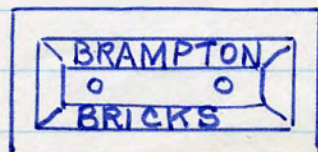 BRAMPTON
BRICKS